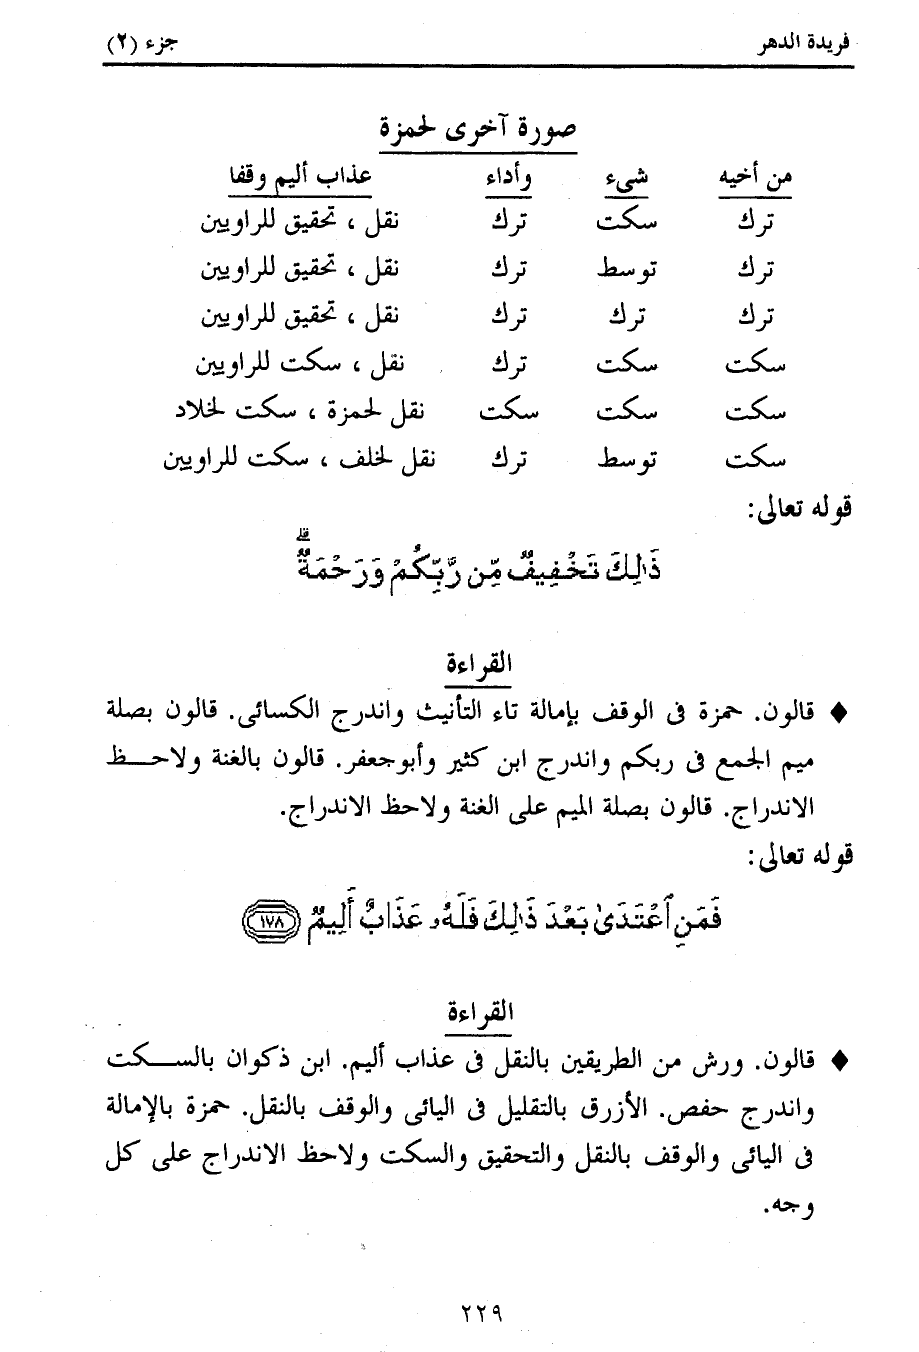 فريدة الدهر جزء (٢)
صورة آخرى لحمزة
من أخيه شىء وأداء عذاب أليم وقفا
ترك سكت ترك نقل ، تحقيق للراويين
ترك توسط ترك نقل ، تحقيق للراويين
ترك ترك ترك نقل ، تحقيق للراويين
سكت سكت ترك نقل ، سكت للراويين
سكت سكت سكت نقل لحمزة ، سكت لخلاد
سكت توسط ترك نقل لخلف ، سكت للراويين
قوله تعالى:
ذَٰلِكَ تَخْفِيفٌ مِّن رَّبِّكُمْ وَرَحْمَةٌ ۗ
القراءة
♦ قالون. حمزة فى الوقف بإمالة تاء التأنيث واندرج الكسائى. قالون بصلة
ميم الجمع فى ربكم واندرج ابن كثير وأبوجعفر. قالون بالغنة ولاحــظ
الاندراج. قالون بصلة الميم على الغنة ولاحظ الاندراج.
قوله تعالى:
فَمَنِ ٱعْتَدَىٰ بَعْدَ ذَٰلِكَ فَلَهُۥ عَذَابٌ أَلِيمٌ ١٧٨
القراءة
♦ قالون. ورش من الطريقين بالنقل فى عذاب أليم. ابن ذكوان بالســكت
واندرج حفص. الأزرق بالتقليل فى اليائى والوقف بالنقل. حمزة بالإمالة
فى اليائى والوقف بالنقل والتحقيق والسكت ولاحظ الاندراج على كل
وجه.
٢٢٩